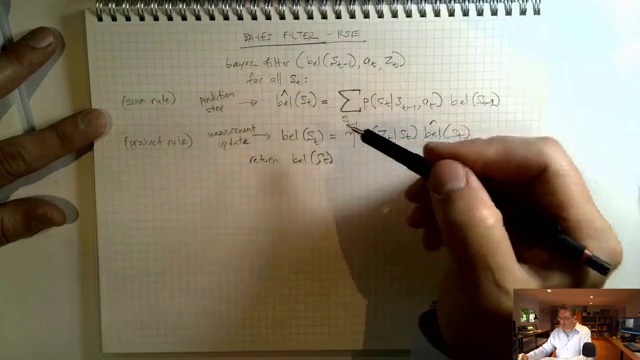 BAYES FILTER - RSE
bayes filter (bel(St-1), at, Zt)
for all St:
(sum rule) prediction step → b̂el(St) = ∑ p(St|St-1, at) bel(St-1)
(product rule) measurement update → bel(St) = (Zt|St) b̂el(St)
return bel(St)